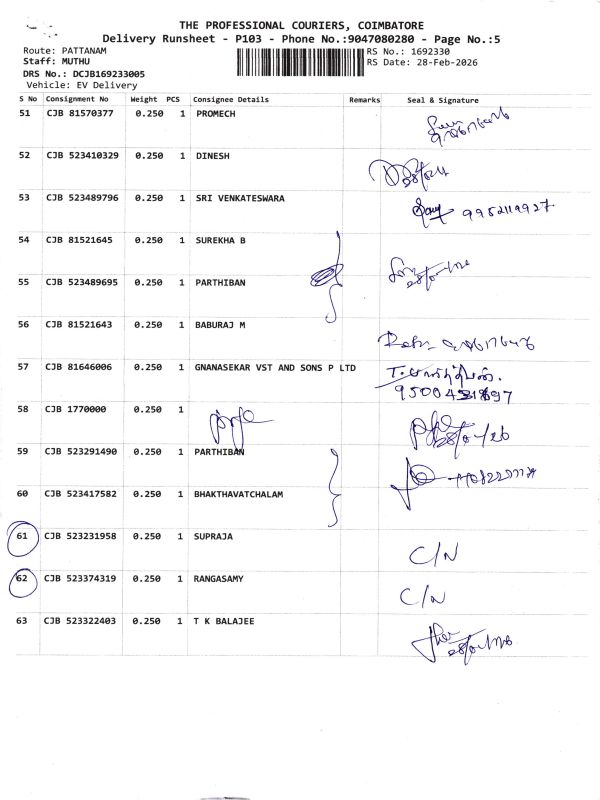 THE PROFESSIONAL COURIERS, COIMBATORE
Delivery Runsheet - P103 - Phone No.:9047080280 - Page No.:5
Route: PATTANAM
RS No.: 1692330
Staff: MUTHU
RS Date: 28-Feb-2026
DRS No.: DCJB169233005
Vehicle: EV Delivery
S No Consignment No Weight PCS Consignee Details Remarks Seal & Signature
51 CJB 81570377 0.250 1 PROMECH
52 CJB 523410329 0.250 1 DINESH
53 CJB 523489796 0.250 1 SRI VENKATESWARA 9952119927
54 CJB 81521645 0.250 1 SUREKHA B
55 CJB 523489695 0.250 1 PARTHIBAN
56 CJB 81521643 0.250 1 BABURAJ M
57 CJB 81646006 0.250 1 GNANASEKAR VST AND SONS P LTD
58 CJB 1770000 0.250 1
59 CJB 523291490 0.250 1 PARTHIBAN
60 CJB 523417582 0.250 1 BHAKTHAVATCHALAM
61 CJB 523231958 0.250 1 SUPRAJA C/N
62 CJB 523374319 0.250 1 RANGASAMY C/N
63 CJB 523322403 0.250 1 T K BALAJEE